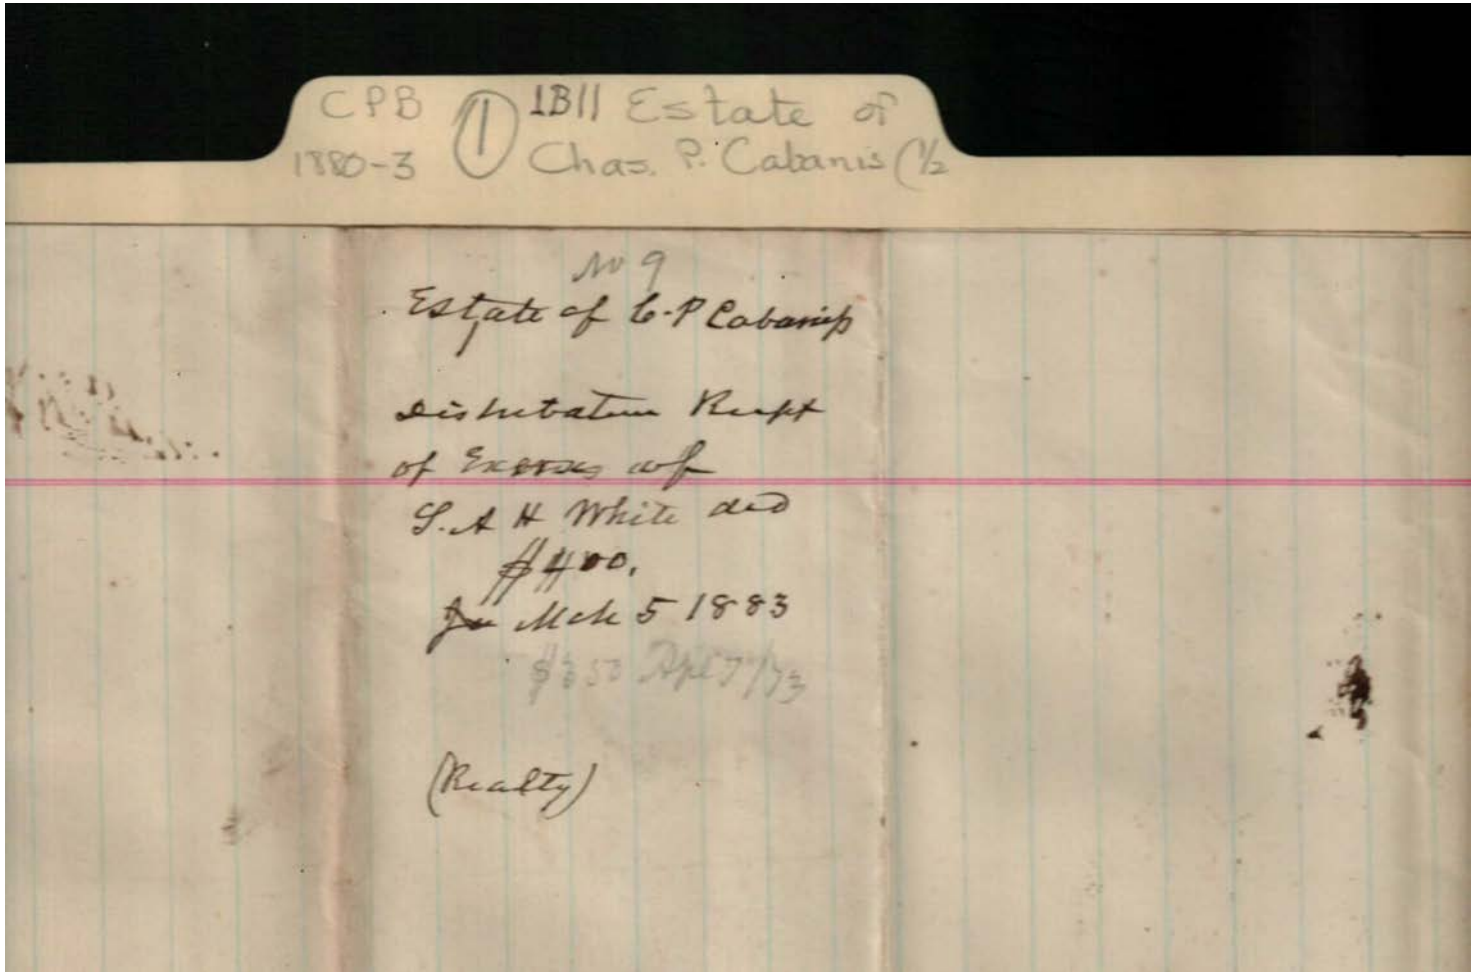 CPB ① 1B11 Estate of
1880-3 Chas. P. Cabanis (1/2
No 9
Estate of C. P Cabaniss
Distribution Recpt
of Exorss of
S. A H White decd
$400.
Mch 5 1883
$350 Apl
(Realty)